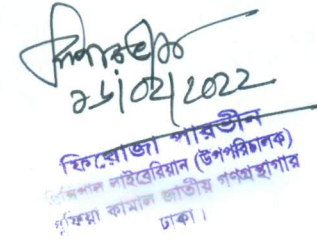 ২১/02/2022
ফিরোজা পারভীন
প্রিন্সিপাল লাইব্রেরিয়ান (উপপরিচালক)
সুফিয়া কামাল জাতীয় গণগ্রন্থাগার
ঢাকা।